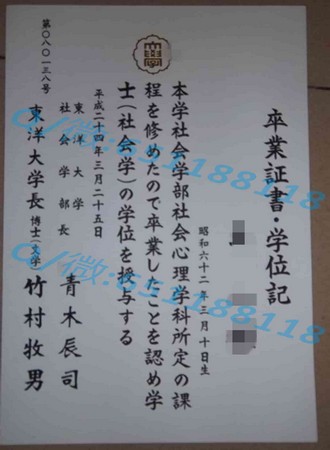 卒業証書・学位記
昭和六十二年三月十日生
本学社会学部社会心理学科所定の課
程を修めたので卒業したことを認め学
士(社会学)の学位を授与する
平成二十四年三月二十五日
東洋大学
社会学部長 青木辰司
東洋大学長 博士(文学) 竹村牧男
第〇八〇一三八号